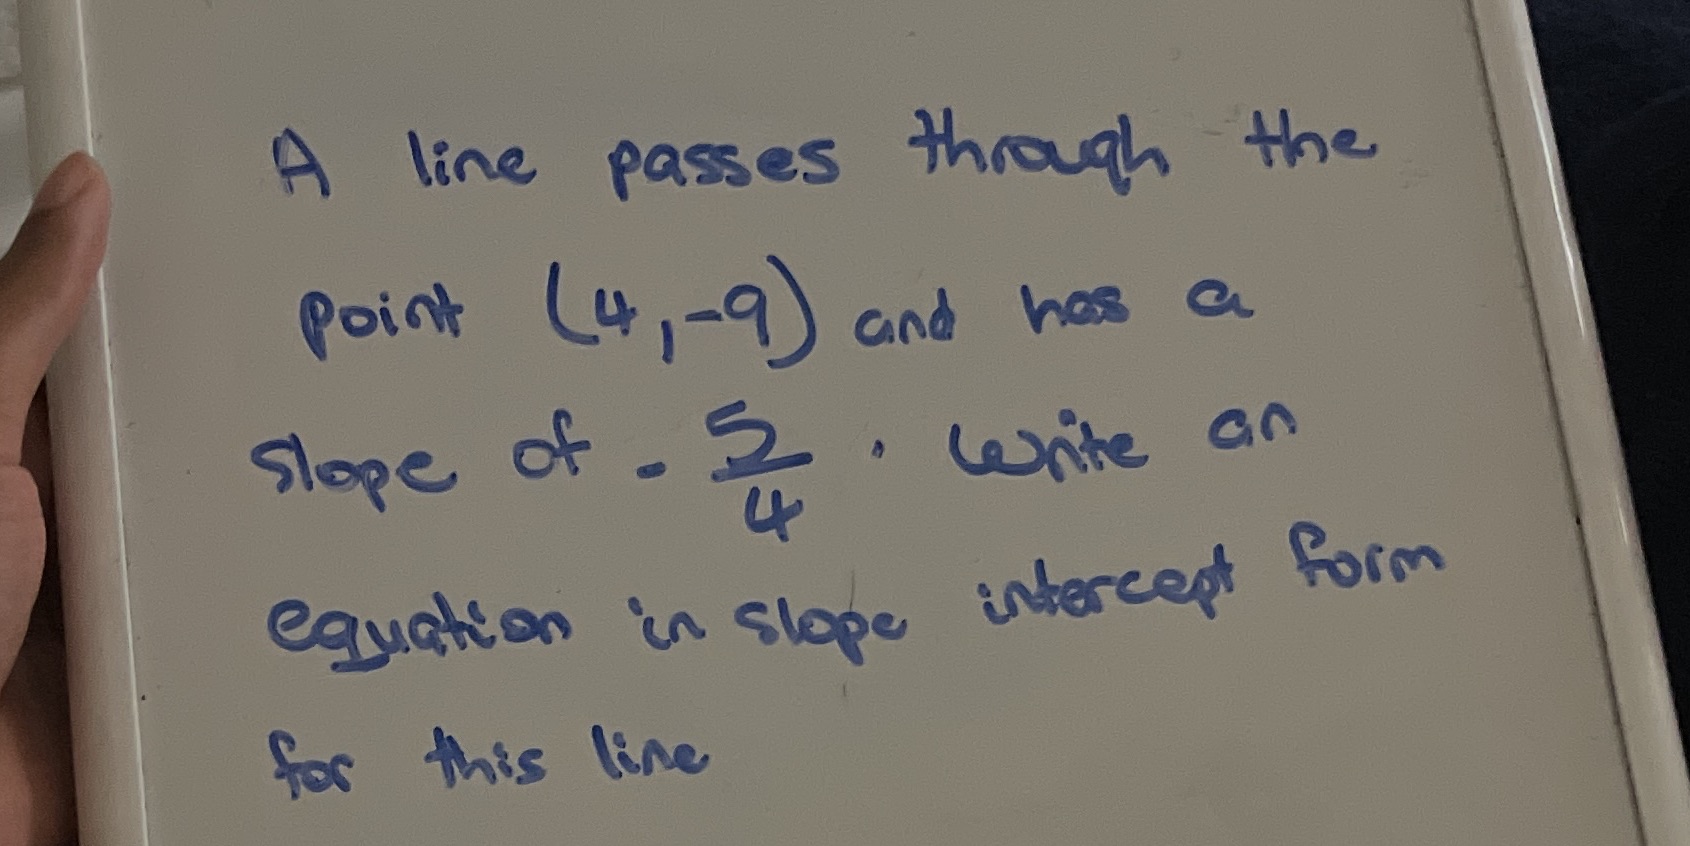 A line passes through the
point (4,-9) and has a
slope of - 5/4. Write an
equation in slope intercept form
for this line